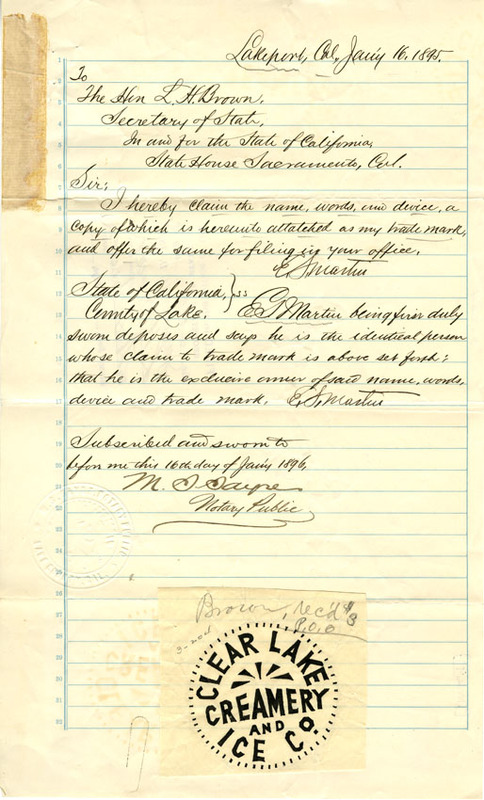 Lakeport, Cal, Jan'y 16, 1895.
To
The Hon L. H. Brown.
Secretary of State,
In and for the State of California,
State House Sacramento, Cal.
Sir;
I hereby claim the name, words, and device, a
copy of which is hereunto attatched as my trade mark,
and offer the same for filing in your office.
Martin
State of California, } ss
County of Lake.
Martin being first duly
sworn deposes and says he is the identical person
whose claim to trade mark is above set forth;
that he is the exclusive owner of said name, words,
device and trade mark. Martin
Subscribed and sworn to
before me this 16th day of Jan'y 1896,
M. S. Sayre
Notary Public
Brown, rec'd $3
P.O.O
CLEAR LAKE
CREAMERY
AND
ICE CO.